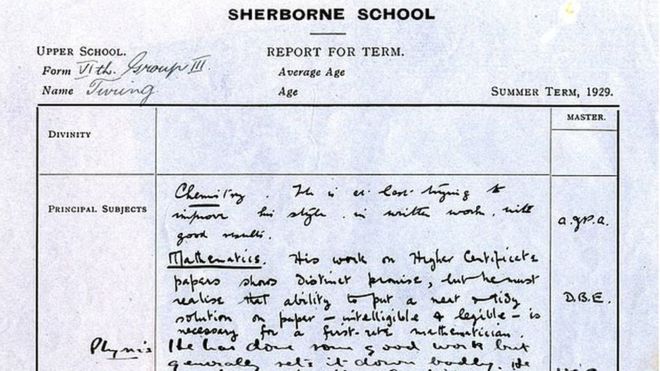 SHERBORNE SCHOOL
UPPER SCHOOL.
REPORT FOR TERM.
Form VIth. Group III.
Average Age
Name Turing
Age
SUMMER TERM, 1929.
MASTER.
DIVINITY
PRINCIPAL SUBJECTS
Chemistry. He is at last trying to
improve his style in written work, with
good results.
A.J.P.A.
Mathematics. His work on Higher Certificate
papers shows distinct promise, but he must
realise that ability to put a neat & tidy
solution on paper – intelligible & legible – is
necessary for a first-rate mathematician.
D.B.E.
Physics He has done some good work but
generally sets it down badly. He